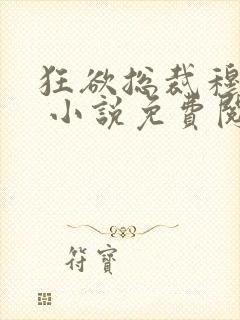 狂欲總裁穆
小說免費閱
符寶